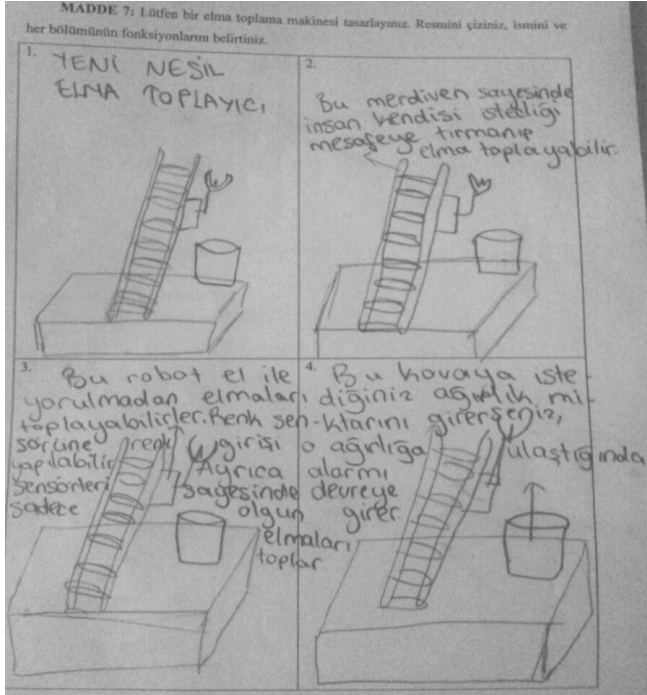 MADDE 7: Lütfen bir elma toplama makinesi tasarlayınız. Resmini çiziniz, ismini ve
her bölümünün fonksiyonlarını belirtiniz.
1.
YENİ NESİL
ELMA TOPLAYICI
2.
Bu merdiven sayesinde
insan kendisi istediği
mesafeye tırmanıp
elma toplayabilir.
3.
Bu robot el ile
yorulmadan elmaları
toplayabilirler. Renk sen-
sörüne renk girişi
yapılabilir. Ayrıca
sensörleri sayesinde
sadece olgun
elmaları
toplar
4.
Bu kovaya iste-
diğiniz ağırlık mi-
ktarını girerseniz,
o ağırlığa ulaştığında
alarmı
devreye
girer.